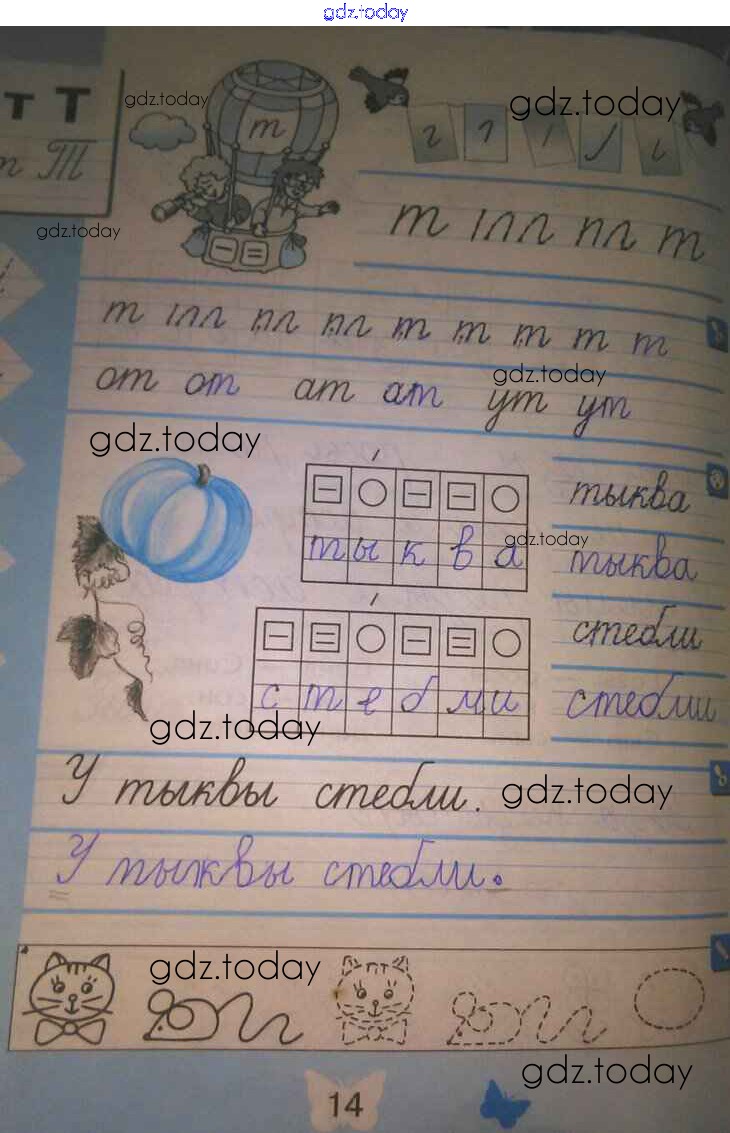 gdz.today
т Т
gdz.today
gdz.today
т Т
т
gdz.today
т т
т
от от ат ат ут ут
gdz.today
gdz.today
тыква
тыква
gdz.today
тыква
стебли
стебли
стебли
gdz.today
У тыквы стебли.
gdz.today
У тыквы стебли.
gdz.today
gdz.today
14